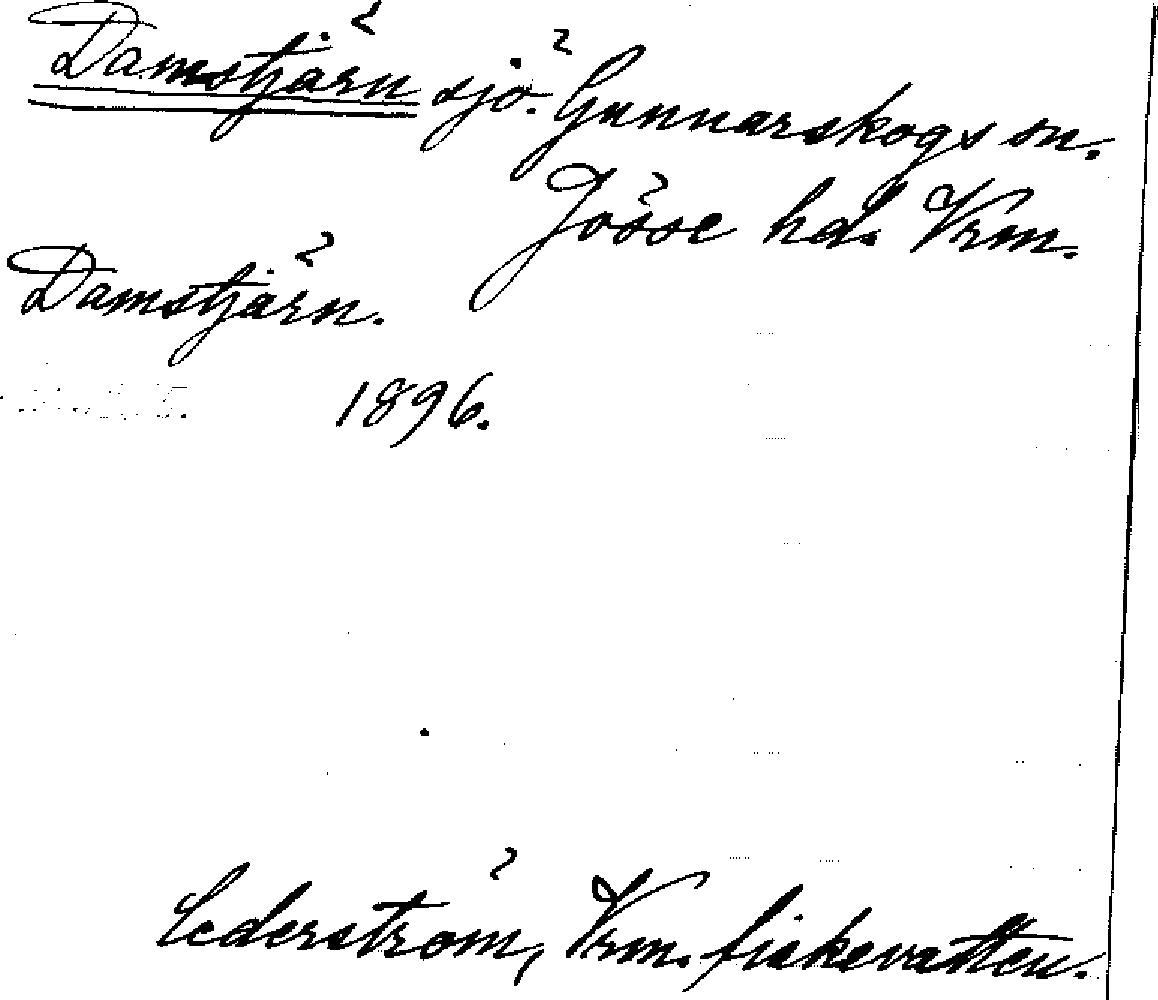 Damstjärn sjö. Gunnarskogs sn.
Jösse hd. Vrm.
Damstjärn.
1896.
Cederström, Vrm. fiskevatten.